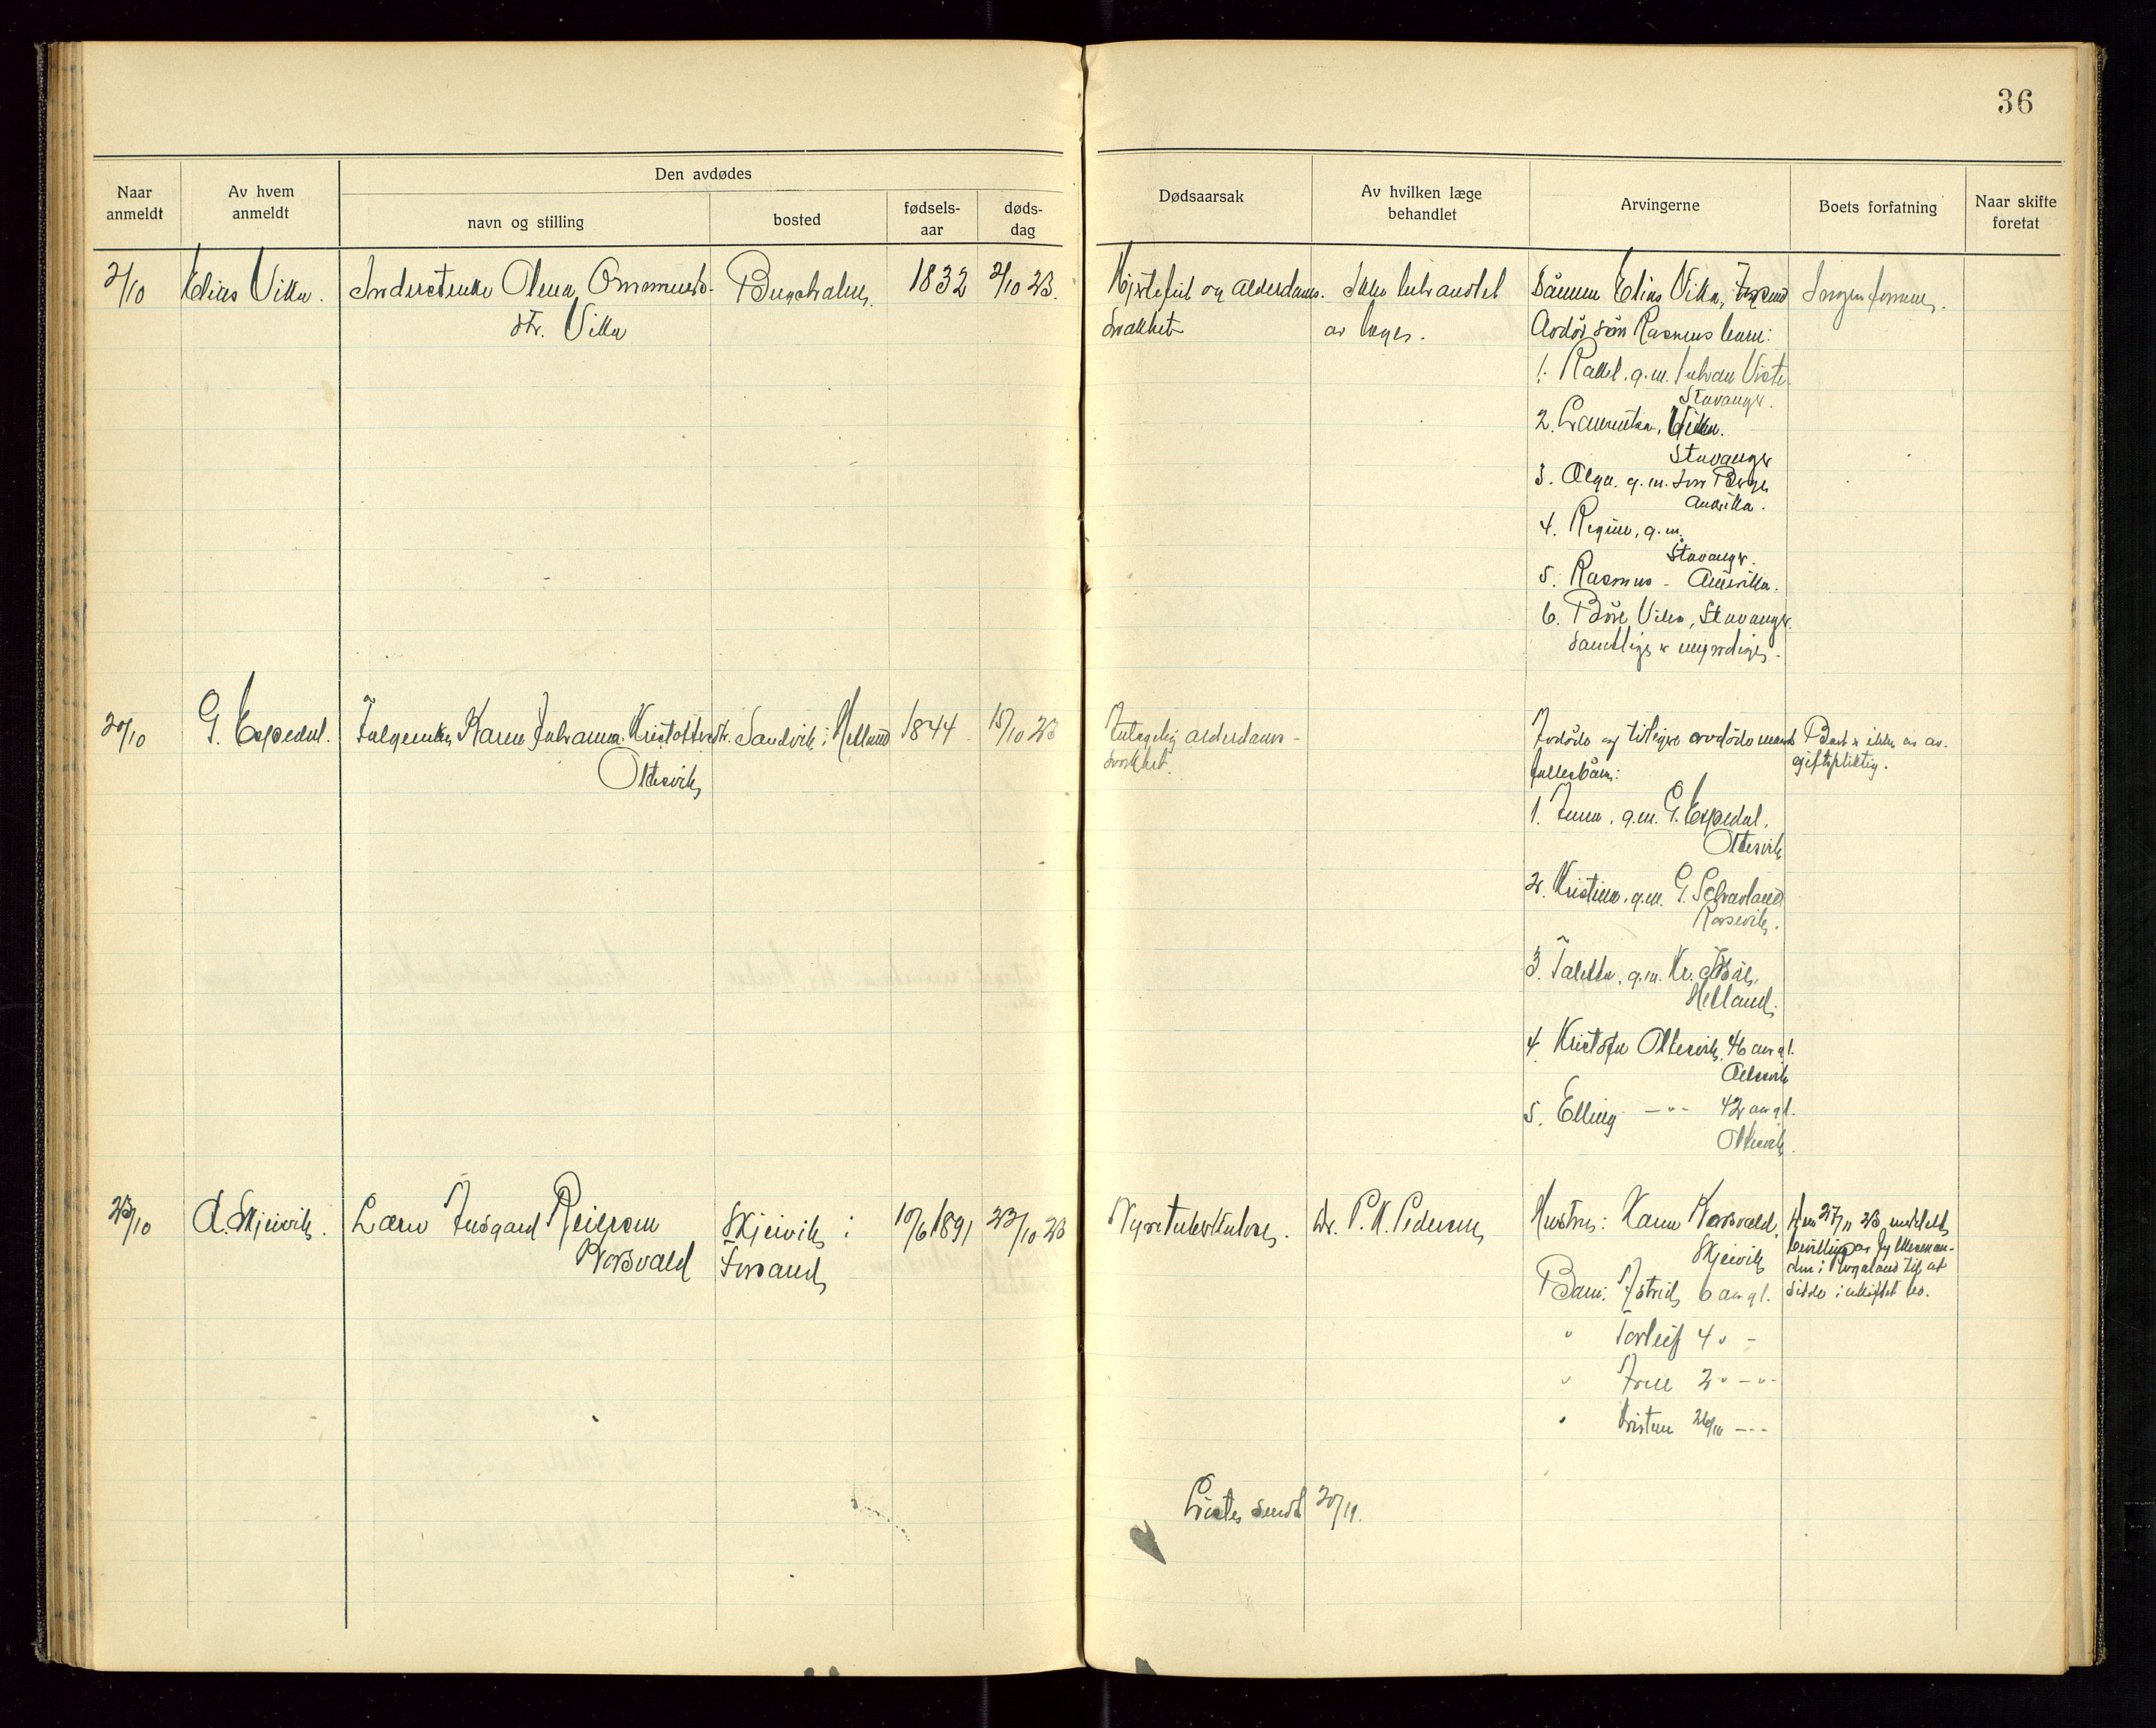 36
Naar anmeldt
Av hvem anmeldt
Den avdødes
navn og stilling
bosted
fødsels-aar
døds-dag
Dødsaarsak
Av hvilken læge behandlet
Arvingerne
Boets forfatning
Naar skifte foretat
2/10 Elias Vika. Inderstenke Olena Ommunds- 1832 2/10 23.
dtr. Vika
Hjertefeil og alderdoms-
svakhet
Ikke behandlet
av læge.
Sønnen Elias Vika,
Avdød søn Rasmus barn:
1. Rakel, g.m. Johan Viste
Stavanger.
2. Laurentse, Vika.
Stavanger
3. Olga, g.m. Berge
Amerika.
4. Regine, g.m.
Stavanger.
5. Rasmus - Amerika.
6. Vika, Stavanger.
Samtlige er myndige.
Ingen formue.
20/10 G. Espedal. Karen Johanna Kristoffersdtr. Sandvik i Helland 1844 15/10 23
Oltesvik
alderdoms-
svakhet.
Avdøde og tidligere avdøde mands
fællesbarn:
1. Anna, g.m. G. Espedal,
Oltesvik
2. Kristina, g.m. G. Selvavland
3. Taletta, g.m. Kr.
Helland.
4. Kristofer Oltesvik, 46 aar gl.
Oltesvik
5. Elling -"- 42 aar gl.
Oltesvik.
Boet er ikke av-
giftspliktig.
23/10 A. Skjeivik. Lærer Reierson
Norsvald
Skjeivik i
Forsand
10/6 1891 23/10 23
Nyretuberkulose.
Dr. P. K. Pedersen
Hustru: Karen Norsvald,
Skjeivik
Barn: Astrid 6 aar gl.
" Torleif 4 " -
" Arne 2 " - " -
" Kristen
Den 27/11 23 meddelt
bevilling av fylkesman-
den i Rogaland til at
sidde i uskiftet bo.
Liste sendt 20/11.